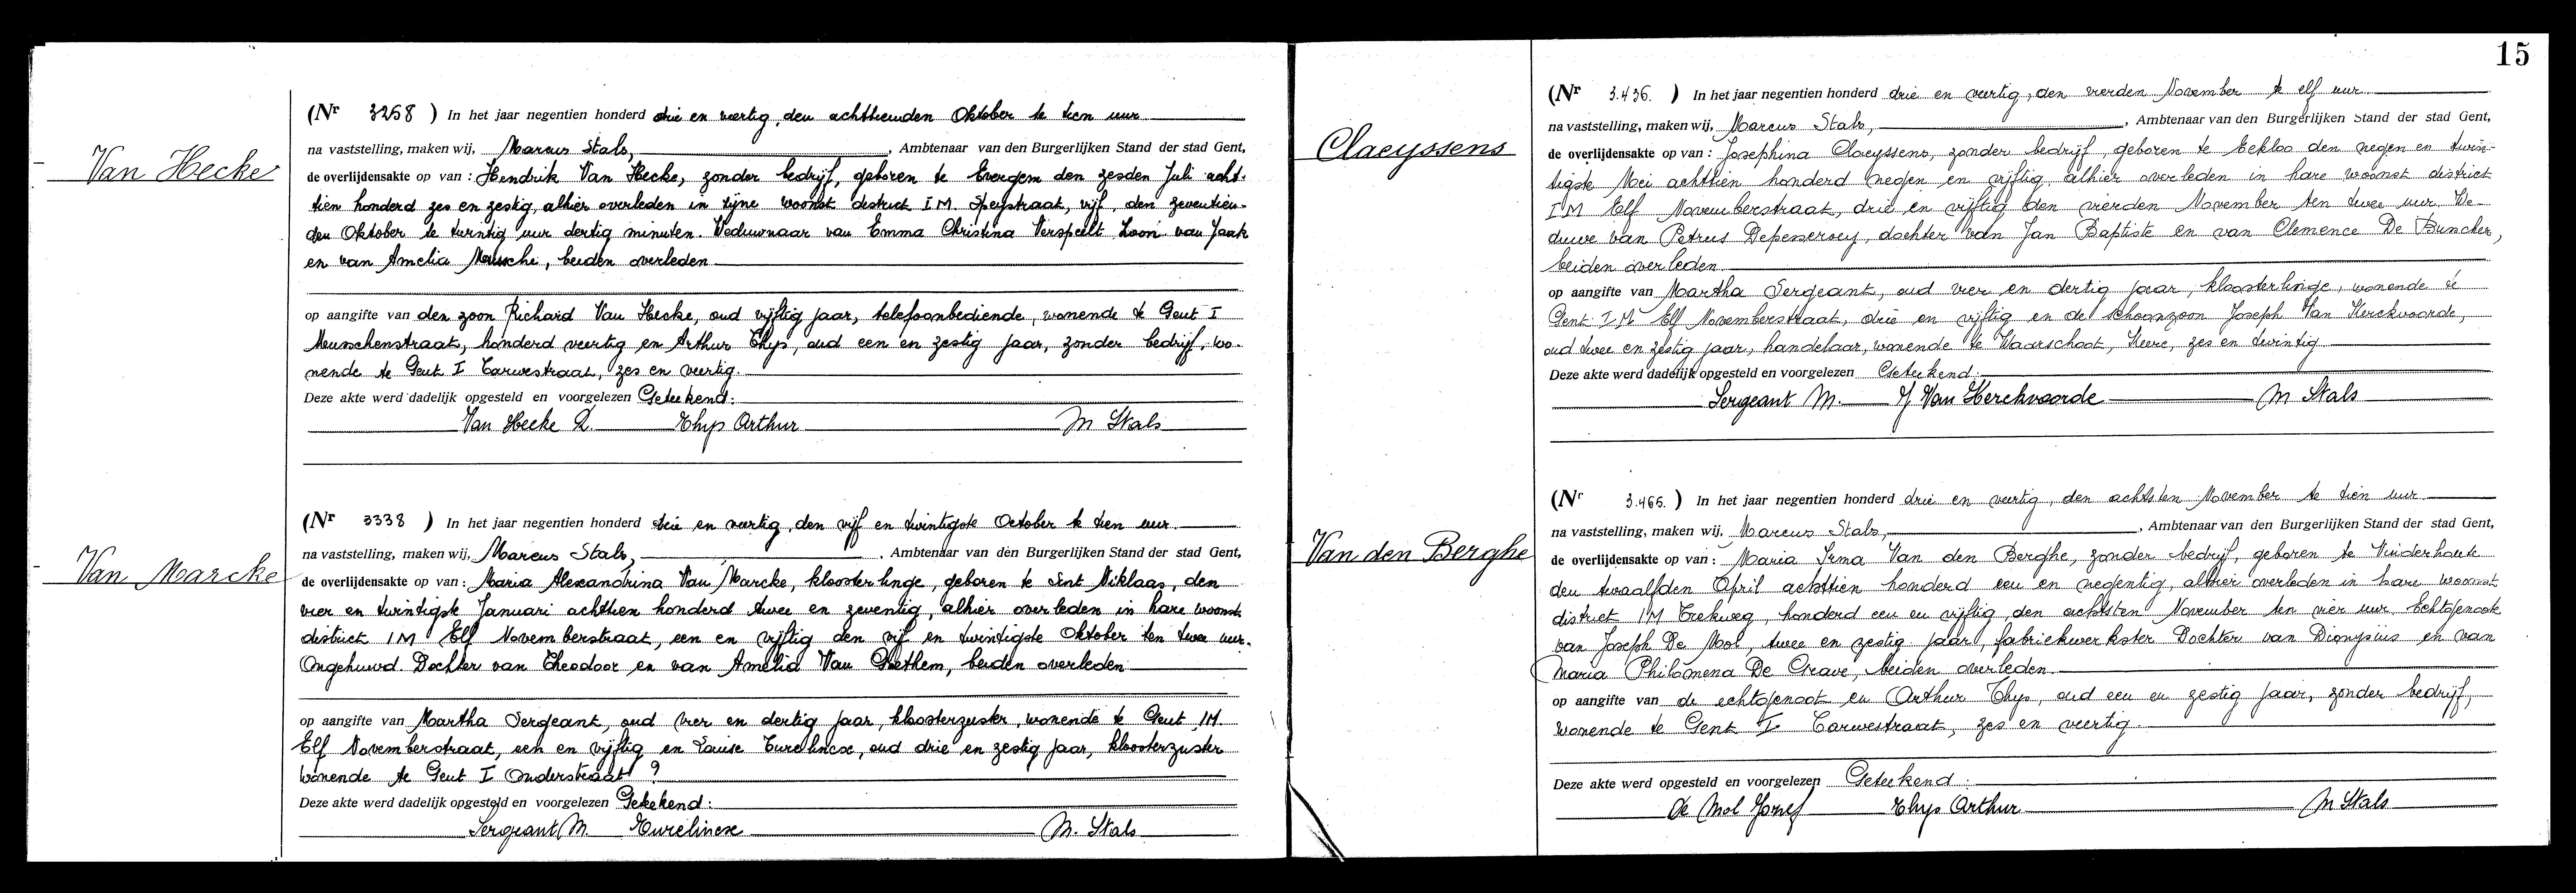 15
Van Hecke
(Nr 3258 ) In het jaar negentien honderd drie en veertig, den achttienden Oktober te tien uur
na vaststelling, maken wij, Marcus Stals, , Ambtenaar van den Burgerlijken Stand der stad Gent,
de overlijdensakte op van : Hendrik Van Hecke, zonder bedrijf, geboren te Evergem den zesden Juli acht-
tien honderd zes en zestig, alhier overleden in zijne woonst district I M. Speystraat, vijf, den zeventien-
den Oktober te twintig uur dertig minuten. Weduwnaar van Emma Christina Verspeelt Zoon van Jaak
en van Amelia , beiden overleden
op aangifte van den zoon Richard Van Hecke, oud vijftig jaar, telefoonbediende, wonende te Gent I
Meusschenstraat, honderd veertig en Arthur Thys, oud een en zestig jaar, zonder bedrijf, wo-
nende te Gent I Tarwestraat, zes en veertig.
Deze akte werd dadelijk opgesteld en voorgelezen Geteekend:
Van Hecke R. Thys Arthur M Stals
Van Marcke
(Nr 3338 ) In het jaar negentien honderd drie en veertig, den vijf en twintigste October te tien uur
na vaststelling, maken wij, Marcus Stals, , Ambtenaar van den Burgerlijken Stand der stad Gent,
de overlijdensakte op van : Maria Alexandrina Van Marcke, kloosterlinge, geboren te Sint Niklaas, den
vier en twintigste Januari achttien honderd twee en zeventig, alhier overleden in hare woonst
district I M Elf Novemberstraat, een en vijftig den vijf en twintigste Oktober ten twee uur.
Ongehuwd. Dochter van Theodoor en van Amelia Van Goethem, beiden overleden
op aangifte van Martha Sergeant, oud vier en dertig jaar, kloosterzuster, wonende te Gent I M.
Elf Novemberstraat, een en vijftig en Louise Turelincx, oud drie en zestig jaar, kloosterzuster
wonende te Gent I Onderstraat 9
Deze akte werd dadelijk opgesteld en voorgelezen Geteekend:
Sergeant M. Turelincx M. Stals
Claeyssens
(Nr 3.436. ) In het jaar negentien honderd drie en veertig, den vierden November te elf uur
na vaststelling, maken wij, Marcus Stals, , Ambtenaar van den Burgerlijken Stand der stad Gent,
de overlijdensakte op van : Josephina Claeyssens, zonder bedrijf, geboren te Eekloo den negen en twin-
tigste Mei achttien honderd negen en vijftig, alhier overleden in hare woonst district
I M Elf Novemberstraat, drie en vijftig den vierden November ten twee uur. We-
duwe van Petrus , dochter van Jan Baptiste en van Clemence De Buncker,
beiden overleden
op aangifte van Martha Sergeant, oud vier en dertig jaar, kloosterlinge, wonende te
Gent I M Elf Novemberstraat, drie en vijftig en de schoonzoon Joseph Van Kerckvoorde,
oud twee en zestig jaar, handelaar, wonende te Waarschoot, , zes en twintig
Deze akte werd dadelijk opgesteld en voorgelezen Geteekend:
Sergeant M. J Van Kerckvoorde M Stals
Van den Berghe
(Nr 3.466. ) In het jaar negentien honderd drie en veertig, den achtsten November te tien uur
na vaststelling, maken wij, Marcus Stals, , Ambtenaar van den Burgerlijken Stand der stad Gent,
de overlijdensakte op van : Maria Irma Van den Berghe, zonder bedrijf, geboren te Vinderhoute
den twaalfden April achttien honderd een en negentig, alhier overleden in hare woonst
district I M Trekweg, honderd een en vijftig den achtsten November ten vier uur. Echtgenoote
van Joseph De Mol, twee en zestig jaar, fabriekwerkster Dochter van Dionysius en van
Maria Philomena De Grave, beiden overleden.
op aangifte van de echtgenoot en Arthur Thys, oud een en zestig jaar, zonder bedrijf,
wonende te Gent I Tarwestraat, zes en veertig.
Deze akte werd opgesteld en voorgelezen Geteekend:
De Mol Jozef Thys Arthur M Stals